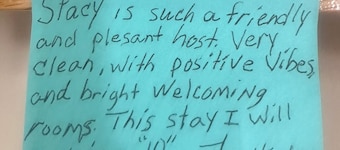 Stacy is such a friendly
and plesant host. Very
clean, with positive vibes,
and bright welcoming
rooms. This stay I will
"10"